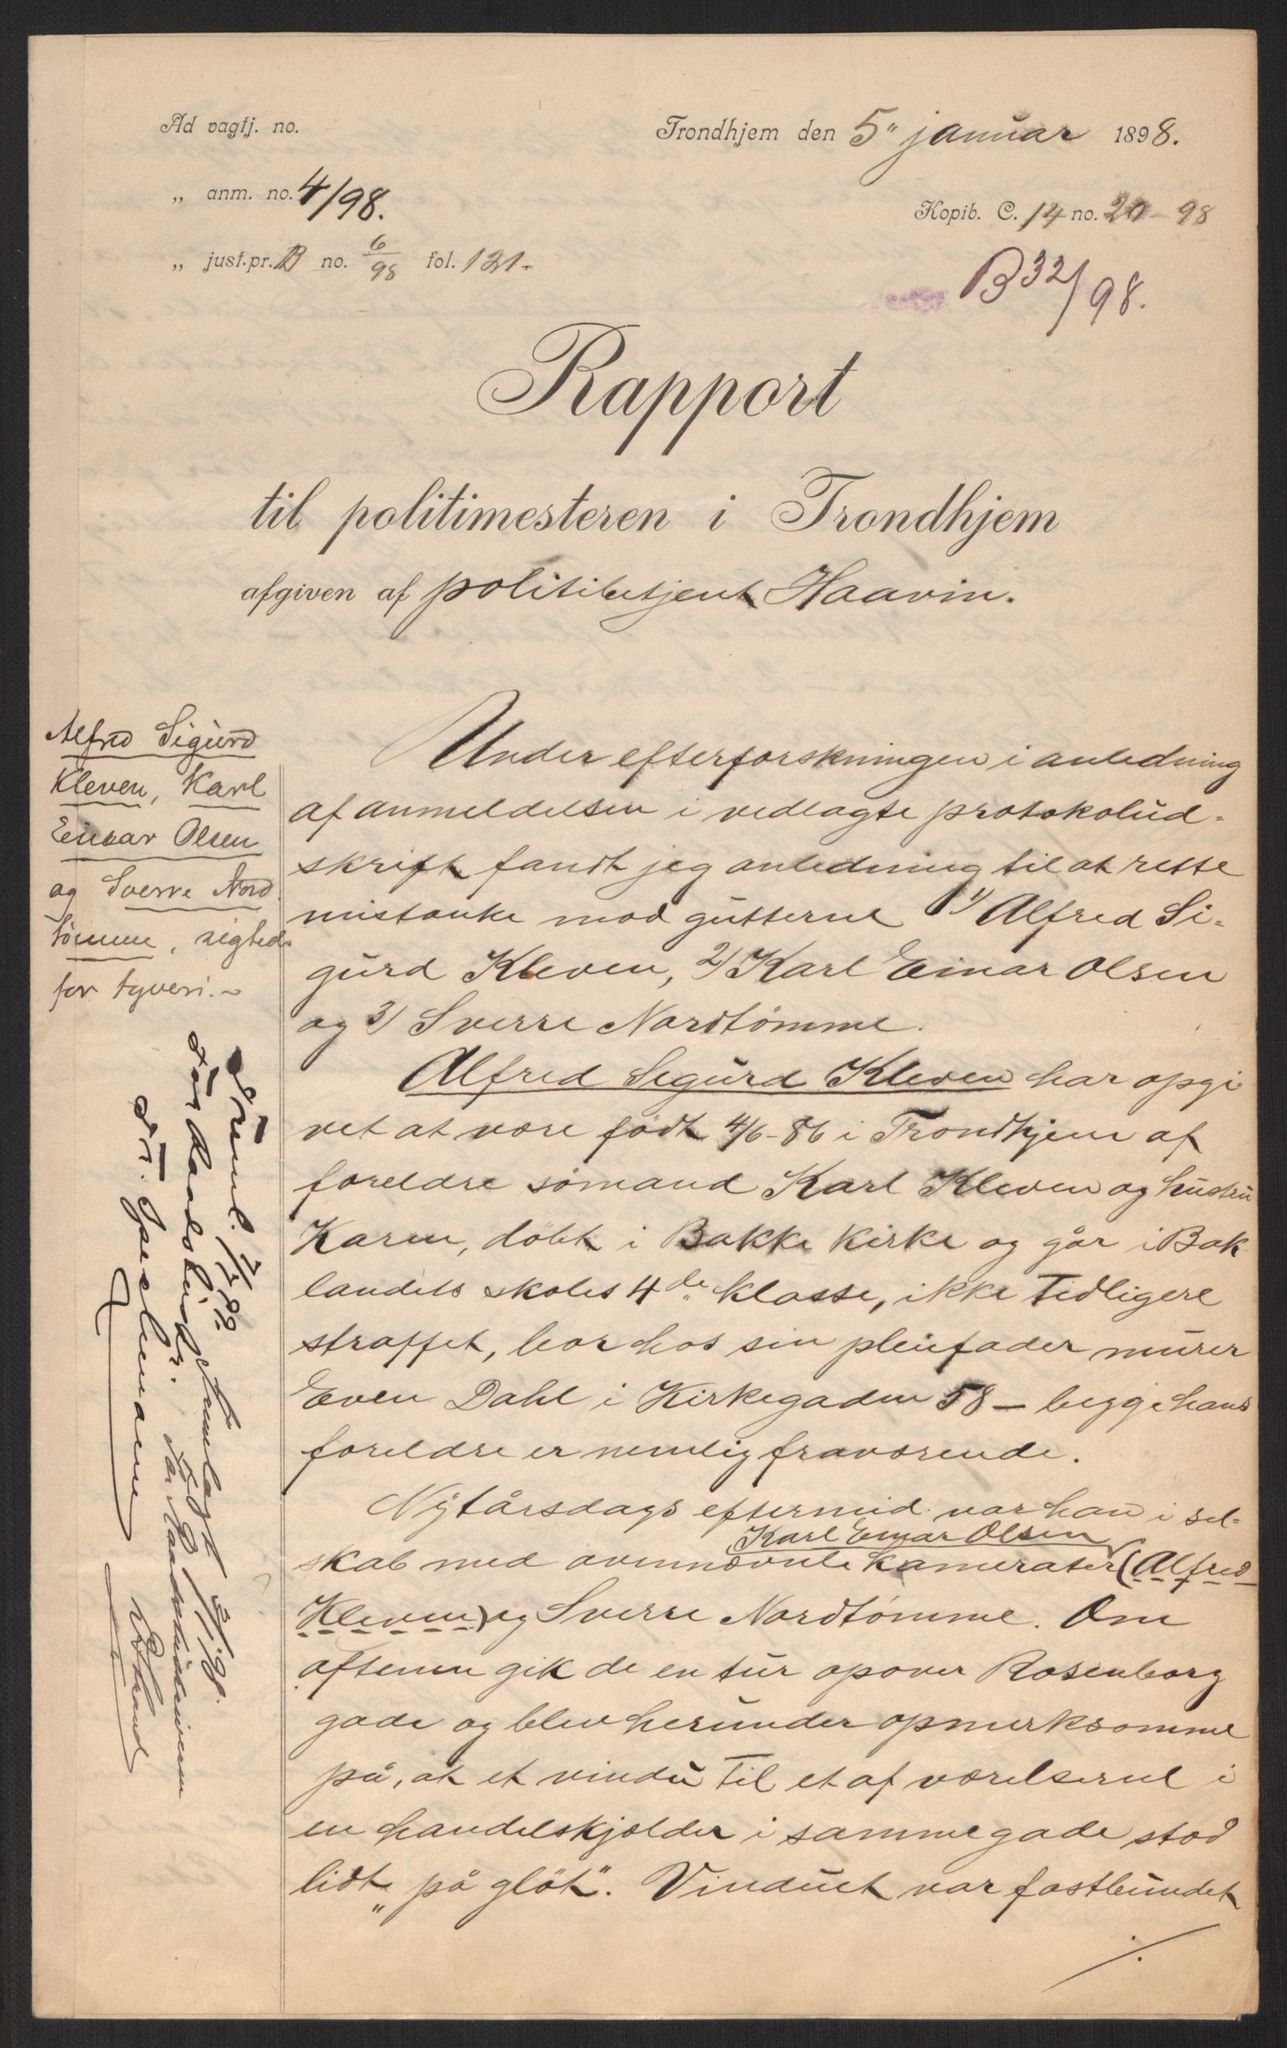 Ad vagtj. no.
Trondhjem den 5" januar 1898.
„ anm. no. 4/98.
Kopib. C. 14 no. 20 - 98
„ just.pr. B no. 6/98 fol. 121-
B 32/98.
Rapport
til politimesteren i Trondhjem
afgiven af politibetjent Haavin.
Alfred Sigurd
Kleven, Karl
Einar Olsen
og Sverre Nord
tømme, sigtede
for tyveri.-
Under efterforskningen i anledning
af anmeldelsen i vedlagte protokolud-
skrift fandt jeg anledning til at rette
mistanke mod gutterne 1/ Alfred Si-
gurd Kleven, 2/ Karl Einar Olsen
og 3/ Sverre Nordtømme.
Alfred Sigurd Kleven har opgi
vet at være født 4/6-86 i Trondhjem af
foreldre sømand Karl Kleven og hustru
Karen, døbt i Bakke kirke og går i Bak
landets skoles 4de klasse, ikke tidligere
straffet, bor hos sin pleiefader murer
Even Dahl i Kirkegaden 58 - begge hans
foreldre er nemlig fraværende.
Nytårsdags eftermid. var han i sel-
Karl Einar Olsen
skab med ovennævnte kamerater (Alfred
Kleven) og Sverre Nordtømme. Om
aftenen gik de en tur opover Rosenborg
gade og blev herunder opmerksomme
på, at et vindu til et af værelserne i
en handelskjelder i samme gade stod
lidt „på gløt". Vinduet var fastbundet
./.